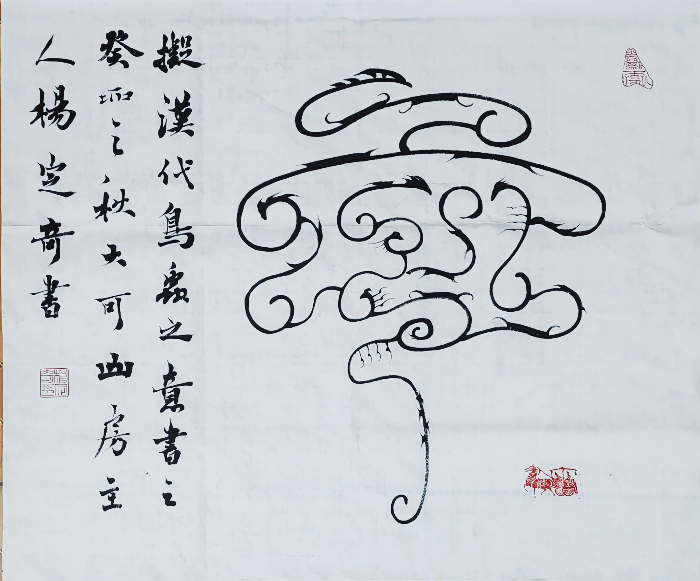 擬漢代鳥蟲之意書之
癸巳之秋大可山房主
人楊定奇書